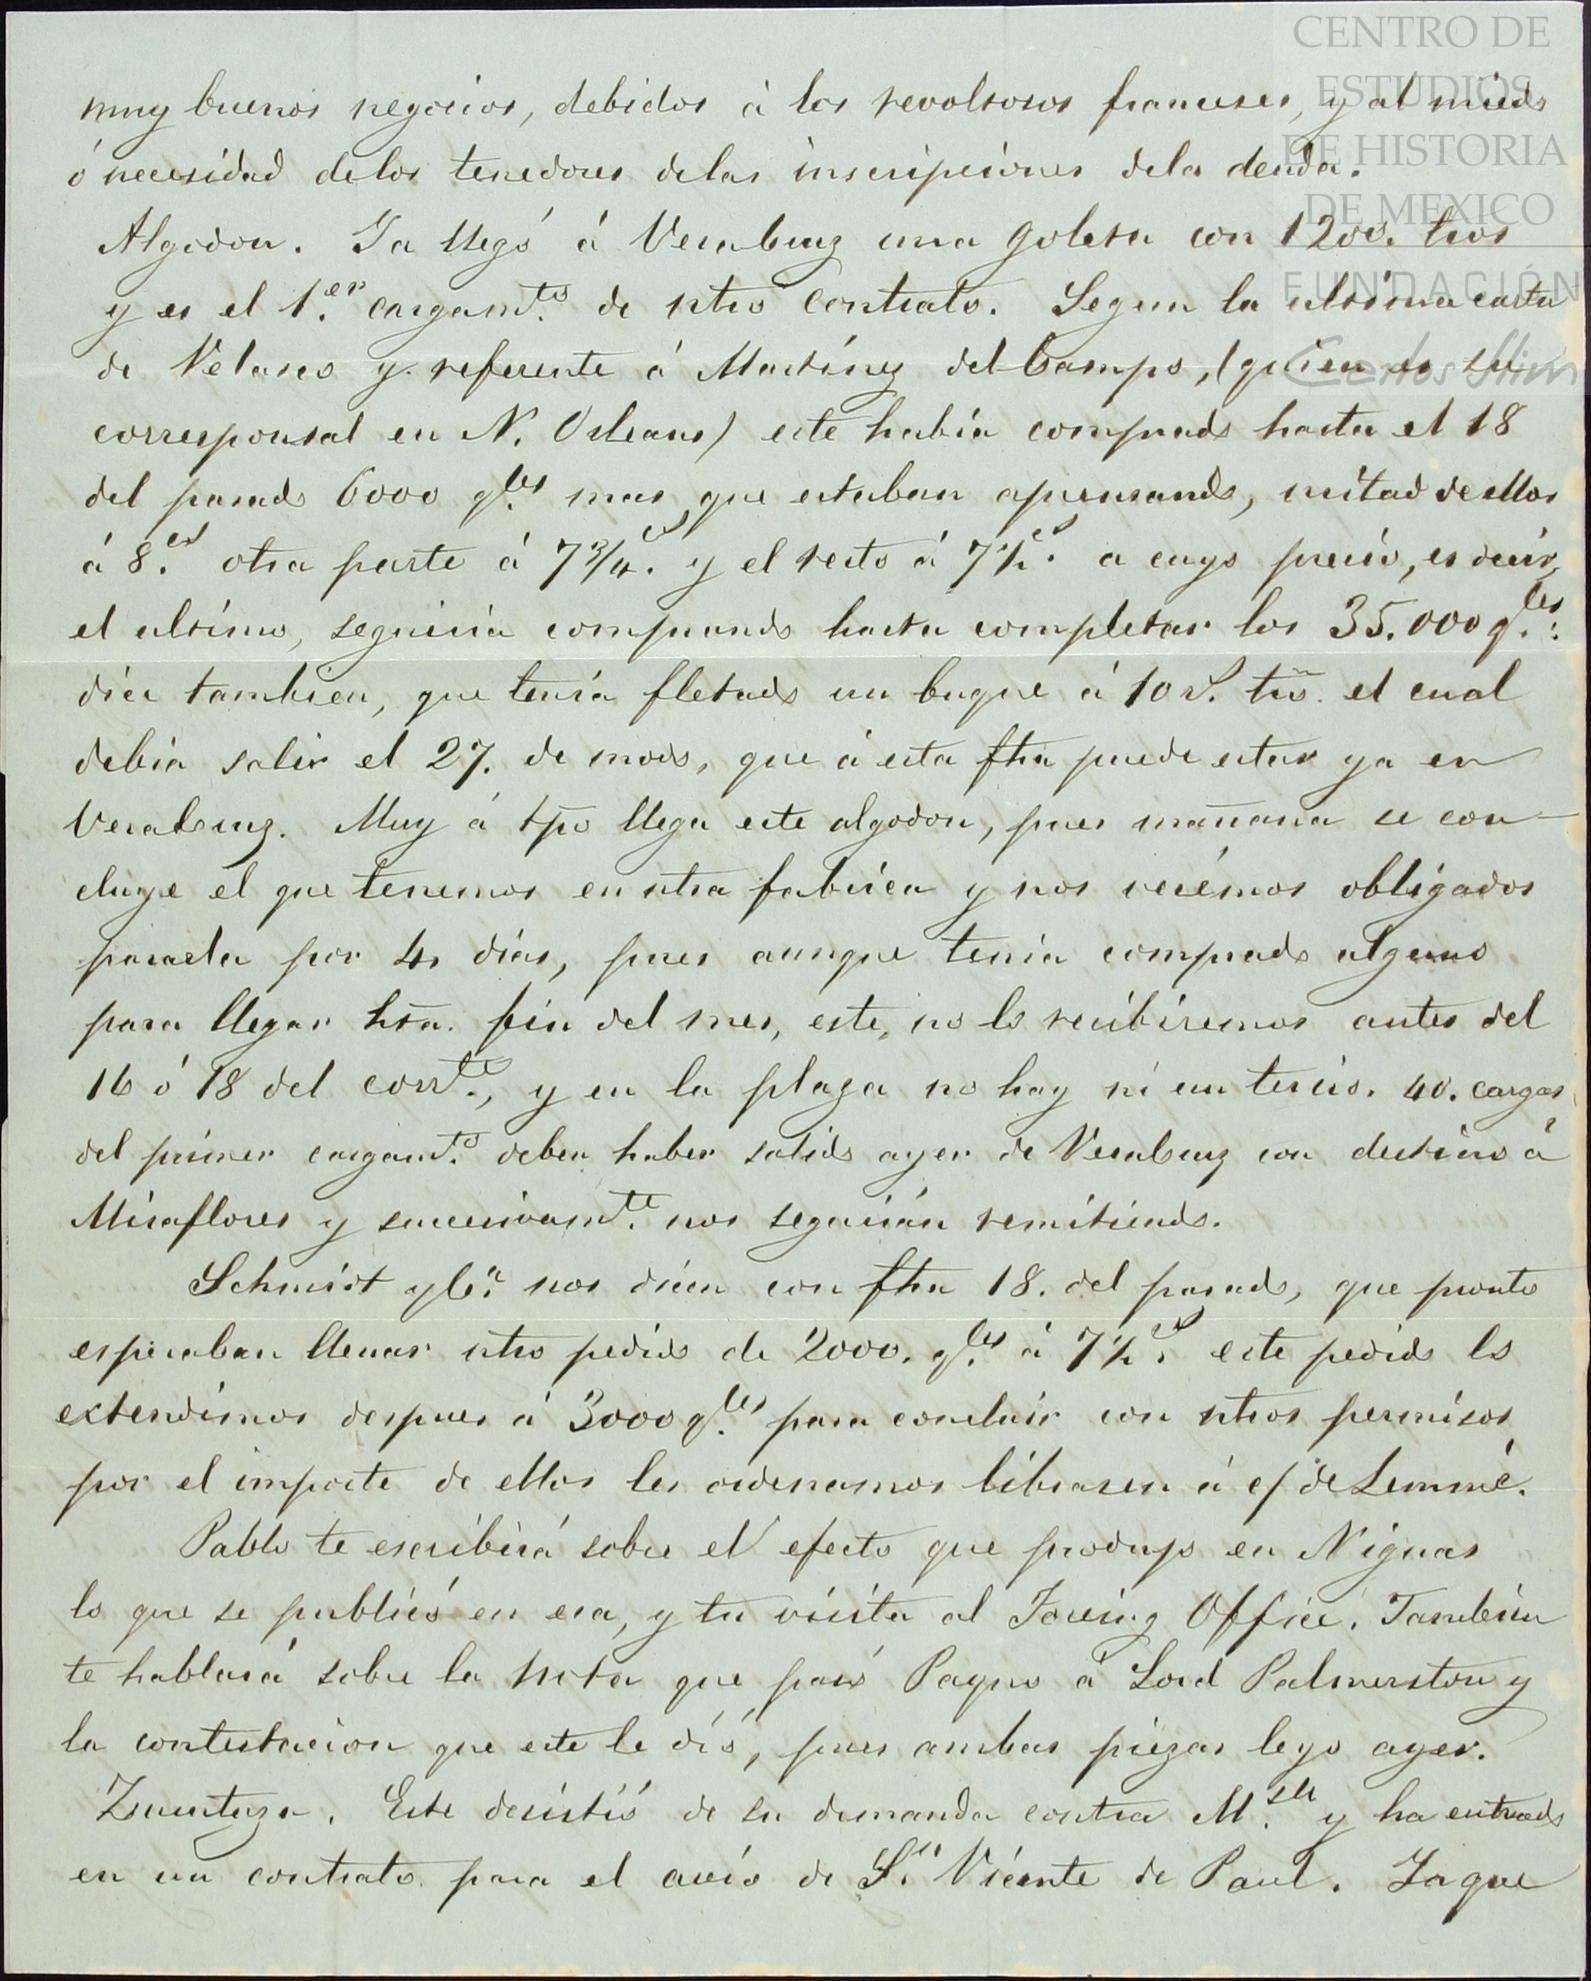 CENTRO DE
ESTUDIOS
DE HISTORIA
DE MEXICO
FUNDACIÓN
Carlos Slim
muy buenos negocios, debidos á los revoltosos franceses, y al miedo
ó necesidad delos tenedores delas inscripciones dela deuda.
Algodon. Ya llegó á Veracruz una goleta con 1200. trios
y es el 1.er cargamto. de ntro contrato. Segun la ultima carta
de Velasco y referente á Martínez del Campo, (quien es su
corresponsal en N. Orleans) este había comprado hasta el 18
del pasado 6000 qles. mas, que estaban aprensando, mitad de ellos
á 8.cs otra parte á 7 3/4.cs y el resto á 7 1/2.cs a cuyo precio, es decir,
el ultimo, seguiria comprando hasta completar los 35.000 qles.:
dice tambien, que tenía fletado un buque á 10 rs. tro. el cual
debia salir el 27. de modo, que á esta fha puede estar ya en
Veracruz. Muy á tpo llega este algodon, pues mañana se con-
cluye el que tenemos en ntra fabrica y nos verémos obligados
pararla por 4 días, pues aunque tenia comprado alguno
para llegar hta. fin del mes, este, no lo recibiremos antes del
16 ó 18 del corrte., y en la plaza no hay ni un tercio. 40. cargas
del primer cargamto. deben haber salido ayer de Veracruz con destino á
Miraflores y sucesivamte. nos seguirán remitiendo.
Schmidt y Ca. nos dicen con fha 18. del pasado, que pronto
esperaban llenar ntro pedido de 2000. qles. á 7 1/2.cs este pedido lo
extendimos despues á 3000 qles. para concluir con ntros permisos,
por el importe de ellos les ordenamos librasen á c/ de Lemmé.
Pablo te escribirá sobre el efecto que produjo en Niguas
lo que se publicó en esa, y tu visita al Foreing Office. Tambien
te hablará sobre la nota que pasó Payno á Lord Palmerston y
la contestacion que este le dió, pues ambas piezas leyo ayer.
Zurutuza. Este desistió de su demanda contra M.lle y ha entrado
en un contrato para el avío de Sn. Vicente de Paul. Ya que